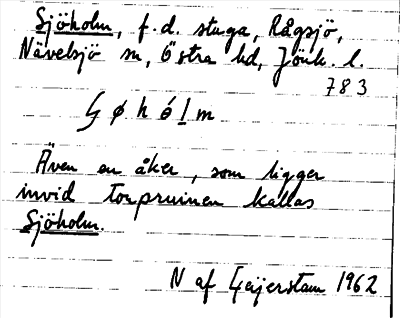 Sjöholm, f.d. stuga, Rågsjö,
Nävelsjö sn, Östra hd, Jönk. l.
783
ʃø h ó l m
Även en åker, som ligger
invid torpruinen kallas
Sjöholm.
N af Geijerstam 1962